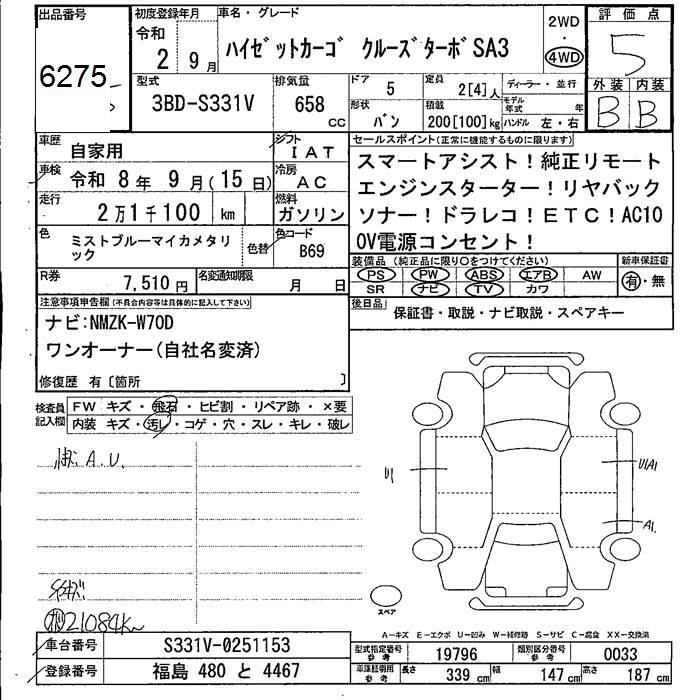 出品番号
6275
初度登録年月
令和
2 9月
車名・グレード
ハイゼットカーゴ クルーズターボSA3
2WD
・
4WD
評価点
5
外装 内装
B B
型式
3BD-S331V
排気量
658
CC
ドア 5
定員 2[4]人
ディーラー・並行
形状 バン
積載 200[100]kg
モデル年式 年
ハンドル 左・右
車歴
自家用
シフト
IAT
車検
令和 8年 9月(15日)
冷房
AC
走行
2万1千100 km
燃料
ガソリン
色
ミストブルーマイカメタリック
色替
色コード
B69
R券
7,510円
名変通知期限
月 日
セールスポイント(正常に機能するものに限ります)
スマートアシスト!純正リモート
エンジンスターター!リヤバック
ソナー!ドラレコ!ETC!AC10
0V電源コンセント!
装備品(純正品に限り○をつけてください)
PS PW ABS エアB AW
SR ナビ TV カワ
新車保証書
有・無
後日品
保証書・取説・ナビ取説・スペアキー
注意事項申告欄(不具合内容等は具体的に記入して下さい)
ナビ:NMZK-W70D
ワンオーナー(自社名変済)
修復歴 有〔箇所 〕
検査員
記入欄
FW キズ・飛石・ヒビ割・リペア跡・×要
内装 キズ・汚レ・コゲ・穴・スレ・キレ・破レ
A.U.
21084K
U1
U1A1
A1.
スペア
A-キズ E-エクボ U-凹み W-補修跡 S-サビ C-腐食 XX-交換済
車台番号
S331V-0251153
登録番号
福島 480 と 4467
型式指定番号
参考
19796
類別区分番号
参考
0033
車庫証明用
参考
長さ 339 cm
幅 147 cm
高さ 187 cm